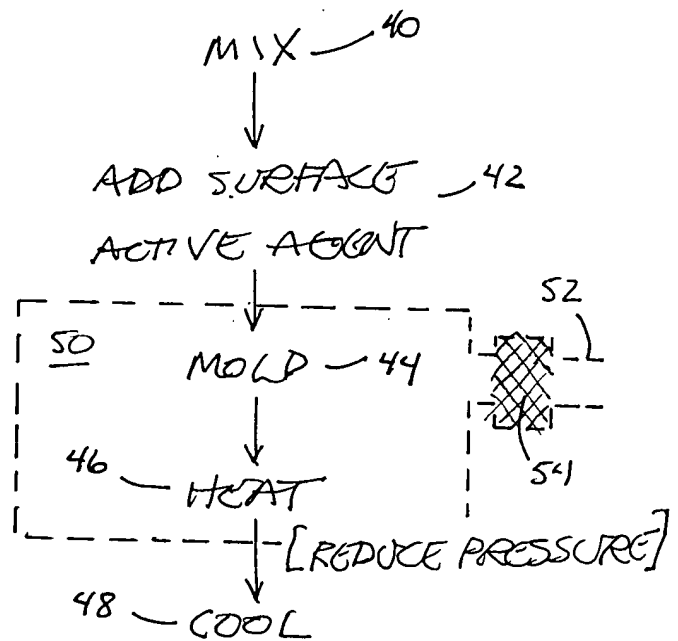 MIX 40
ADD SURFACE 42
ACTIVE AGENT
52
50 MOLD 44
54
46 HEAT
[REDUCE PRESSURE]
48 COOL